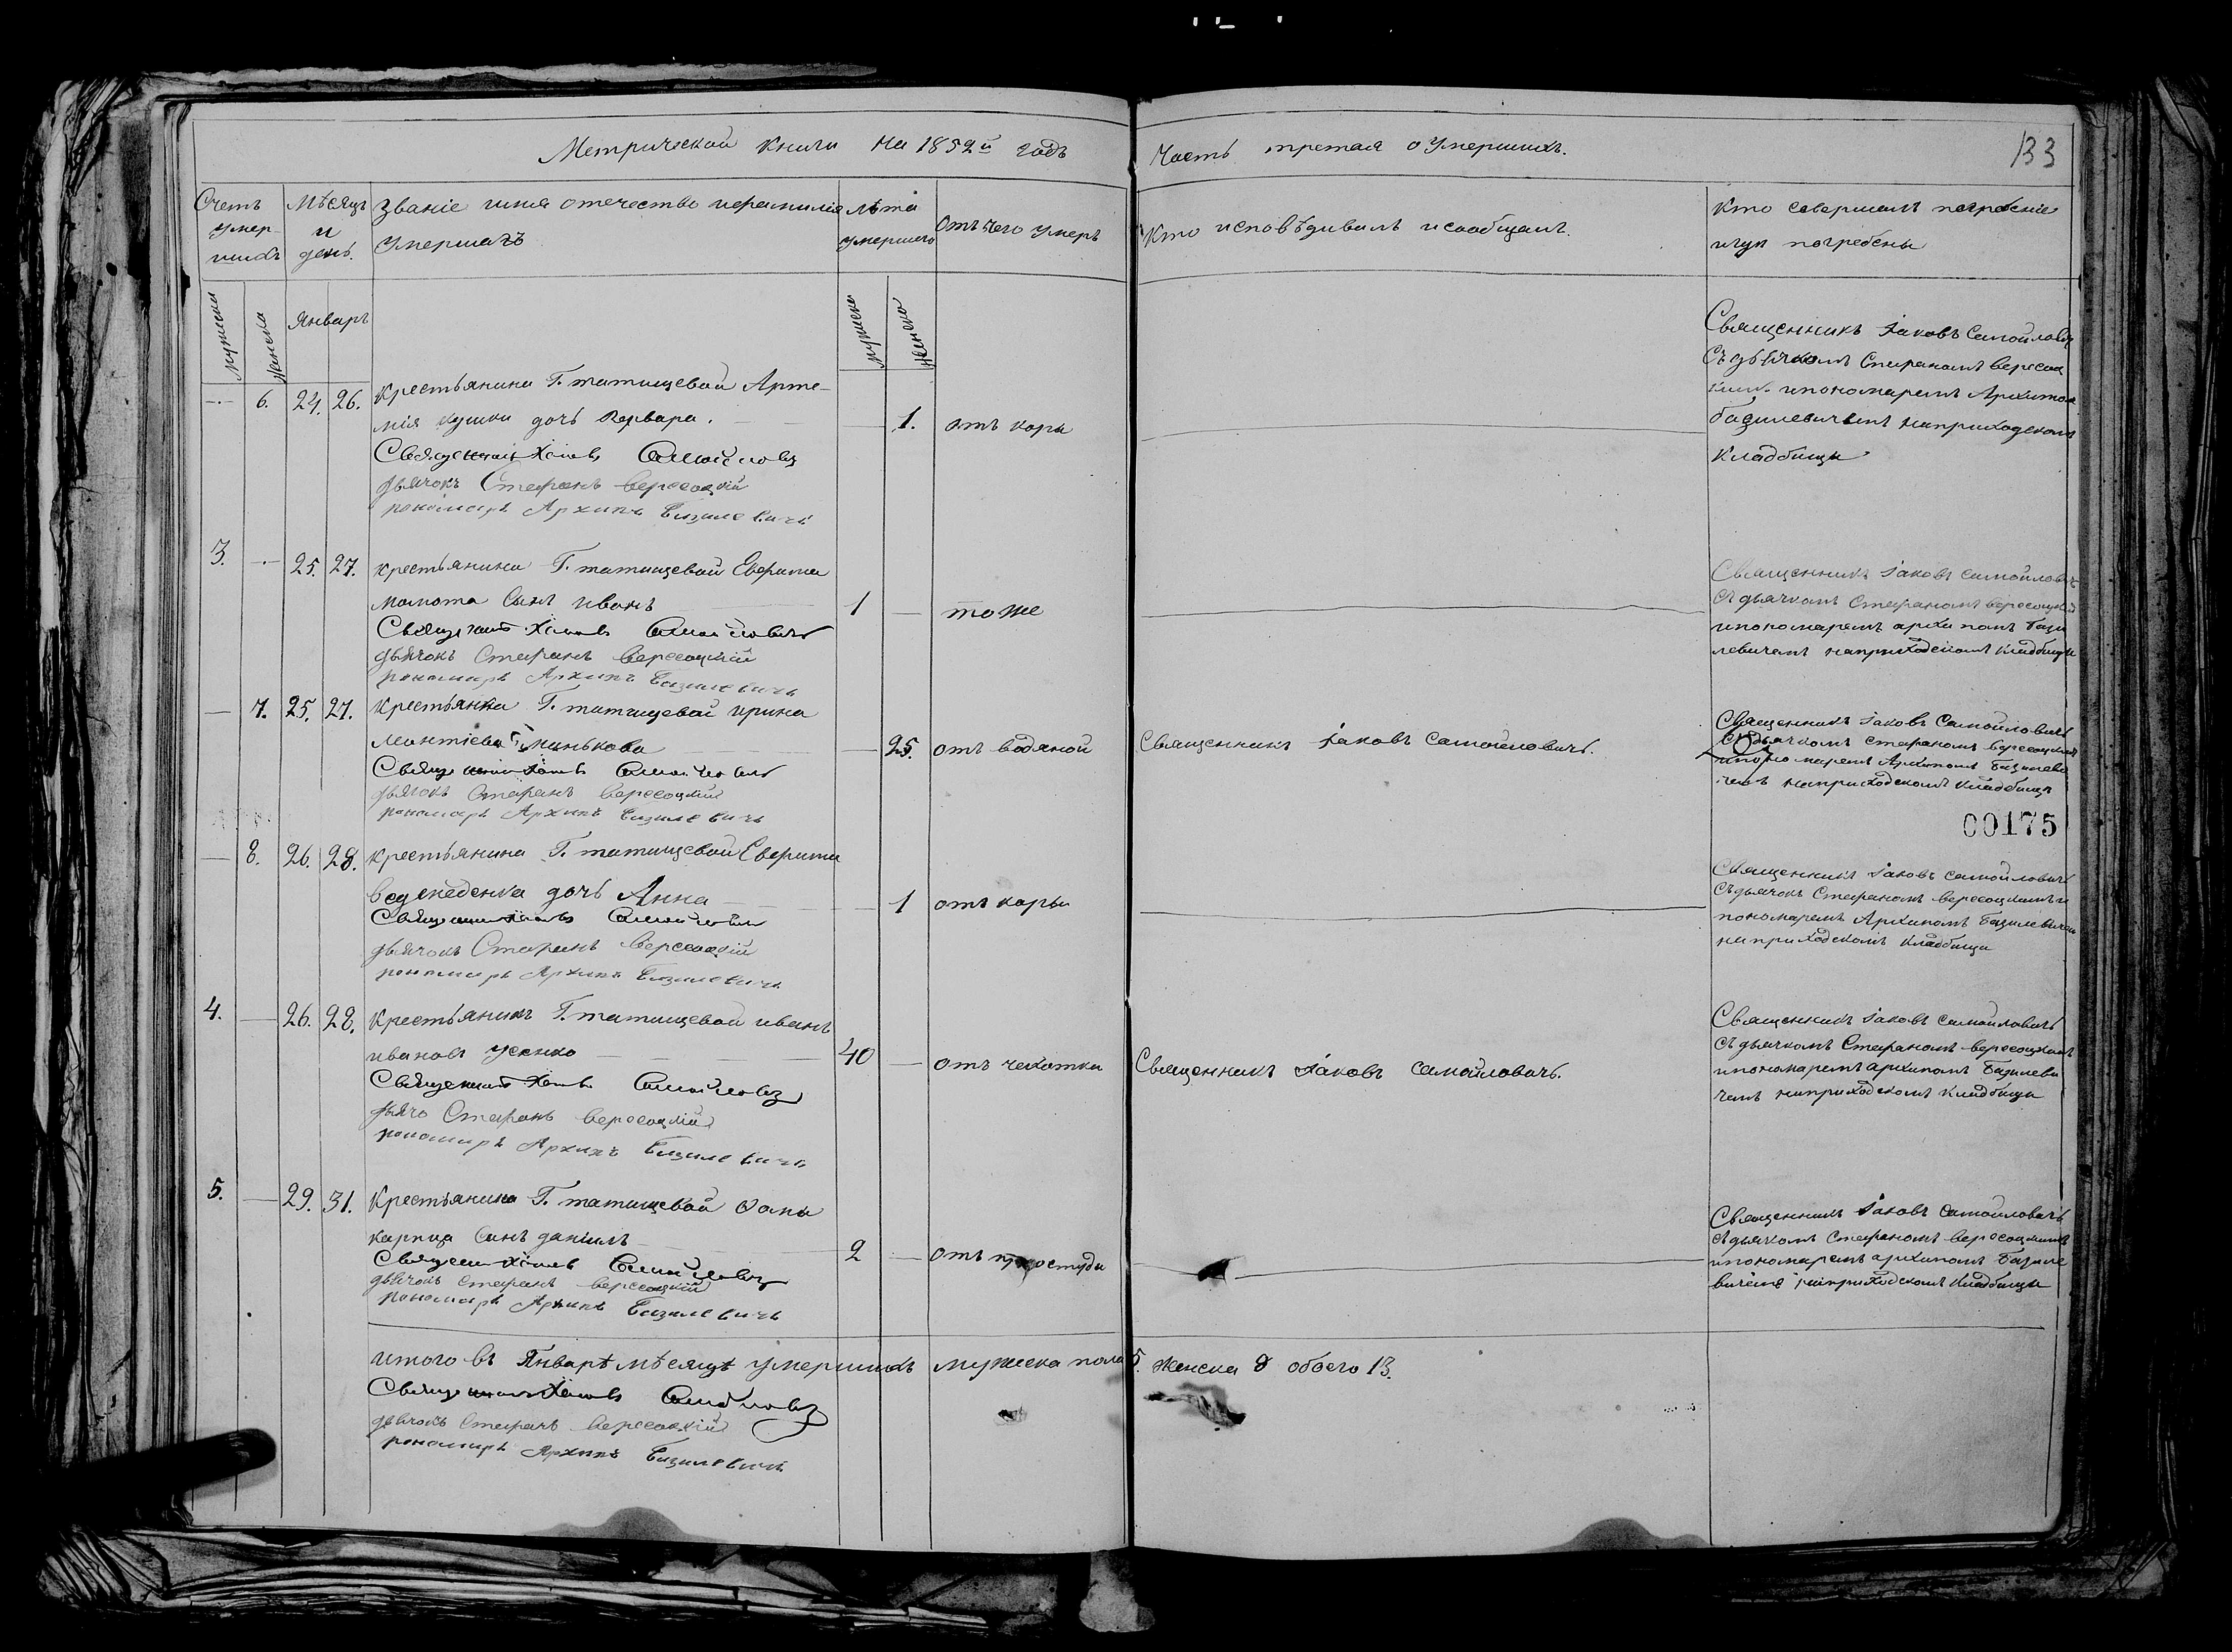 Метрической книги на 1852й годъ
Часть третая о умершихъ.
133
Счетъ умер шихъ
Мѣсяцъ и день.
Званіе имя отечество ифамилія умершахъ
Лѣта умершего
Отъ чего умеръ
Кто исповѣдивалъ исообщалъ.
Кто совершалъ погребеніе игдѣ погребены
Мужеска
Женска
Январъ
мужеска
Женска
— 6. 24. 26. Крестьянина Г. татищевой Арте-
мія кушки дочь Варвара. 1. отъ коры
Священникъ Іаковъ Самойловичъ
дьячокъ Стефанъ Вересоцкій
пономарь Архипъ Базилевичъ
Священникъ Іаковъ Самойловичъ
съ дьячкомъ Стефаномъ Вересоц
кимъ ипономаремъ Архипомъ
базилевичемъ наприходскомъ
Кладбищи
3. — 25. 27. крестьянина Г. татищевой Еврема
мамота Сынъ иванъ 1 — тоже
Священникъ Іаковъ Самойловичъ
дьячокъ Стефанъ Вересоцкій
пономарь Архипъ Базилевичъ
Священникъ Іаковъ самойловичъ
съ дьячкомъ Стефаномъ вересоцкимъ
ипономаремъ архипомъ бази
левичемъ наприходскомъ кладбищи
— 7. 25. 27. Крестьянка Г. татищевой ирина
Минькова — 25. отъ водяной Священникъ Іаковъ Самойловичъ.
Священникъ Іаковъ Самойловичъ
дьячокъ Стефанъ Вересоцкій
пономарь Архипъ Базилевичъ
Священникъ Іаковъ Самойловичъ
съ дьячкомъ стефаномъ вересоцкимъ
ипономаремъ Архипомъ Базилеви
чемъ наприходскомъ кладбищи
00175
— 8. 26. 28. крестьянина Г. татищевой Еврема
дочь Анна 1 отъ коры
Священникъ Іаковъ Самойловичъ
дьячокъ Стефанъ Вересоцкій
пономарь Архипъ Базилевичъ
Священникъ Іаковъ самойловичъ
съ дьячокъ Стефаномъ вересоцкимъ и
пономаремъ Архипомъ Базилевичем
наприходскомъ кладбищи
4. — 26. 28. Крестьянинъ Г. татищевой иванъ
ивановъ усенко 40 — отъ чехотки Священникъ Іаковъ Самойловичъ.
Священникъ Іаковъ Самойловичъ
дьячо Стефанъ Вересоцкій
пономарь Архипъ Базилевичъ
Священникъ Іаковъ Самойловичъ
съ дьячкомъ Стефаномъ вересоцкимъ
ипономаремъ архипомъ Базилеви
чемъ наприходскомъ кладбищи
5. — 29. 31. Крестьянина Г. татищевой Фомы
карпца Синъ даніилъ 2 — отъ простуды
Священникъ Іаковъ Самойловичъ
дьячокъ Стефанъ Вересоцкій
пономарь Архипъ Базилевичъ
Священникъ Іаковъ Самойловичъ
съ дьякомъ Стефаномъ вересоцкимъ
ипономаремъ архипомъ Базиле
вичемъ наприходскомъ кладбищи
итого въ Январѣ мѣсяцѣ умершихъ мужеска пола 5. Женска 8 обоего 13.
Священникъ Іаковъ Самойловичъ
дьячокъ Стефанъ Вересоцкій
пономарь Архипъ Базилевичъ